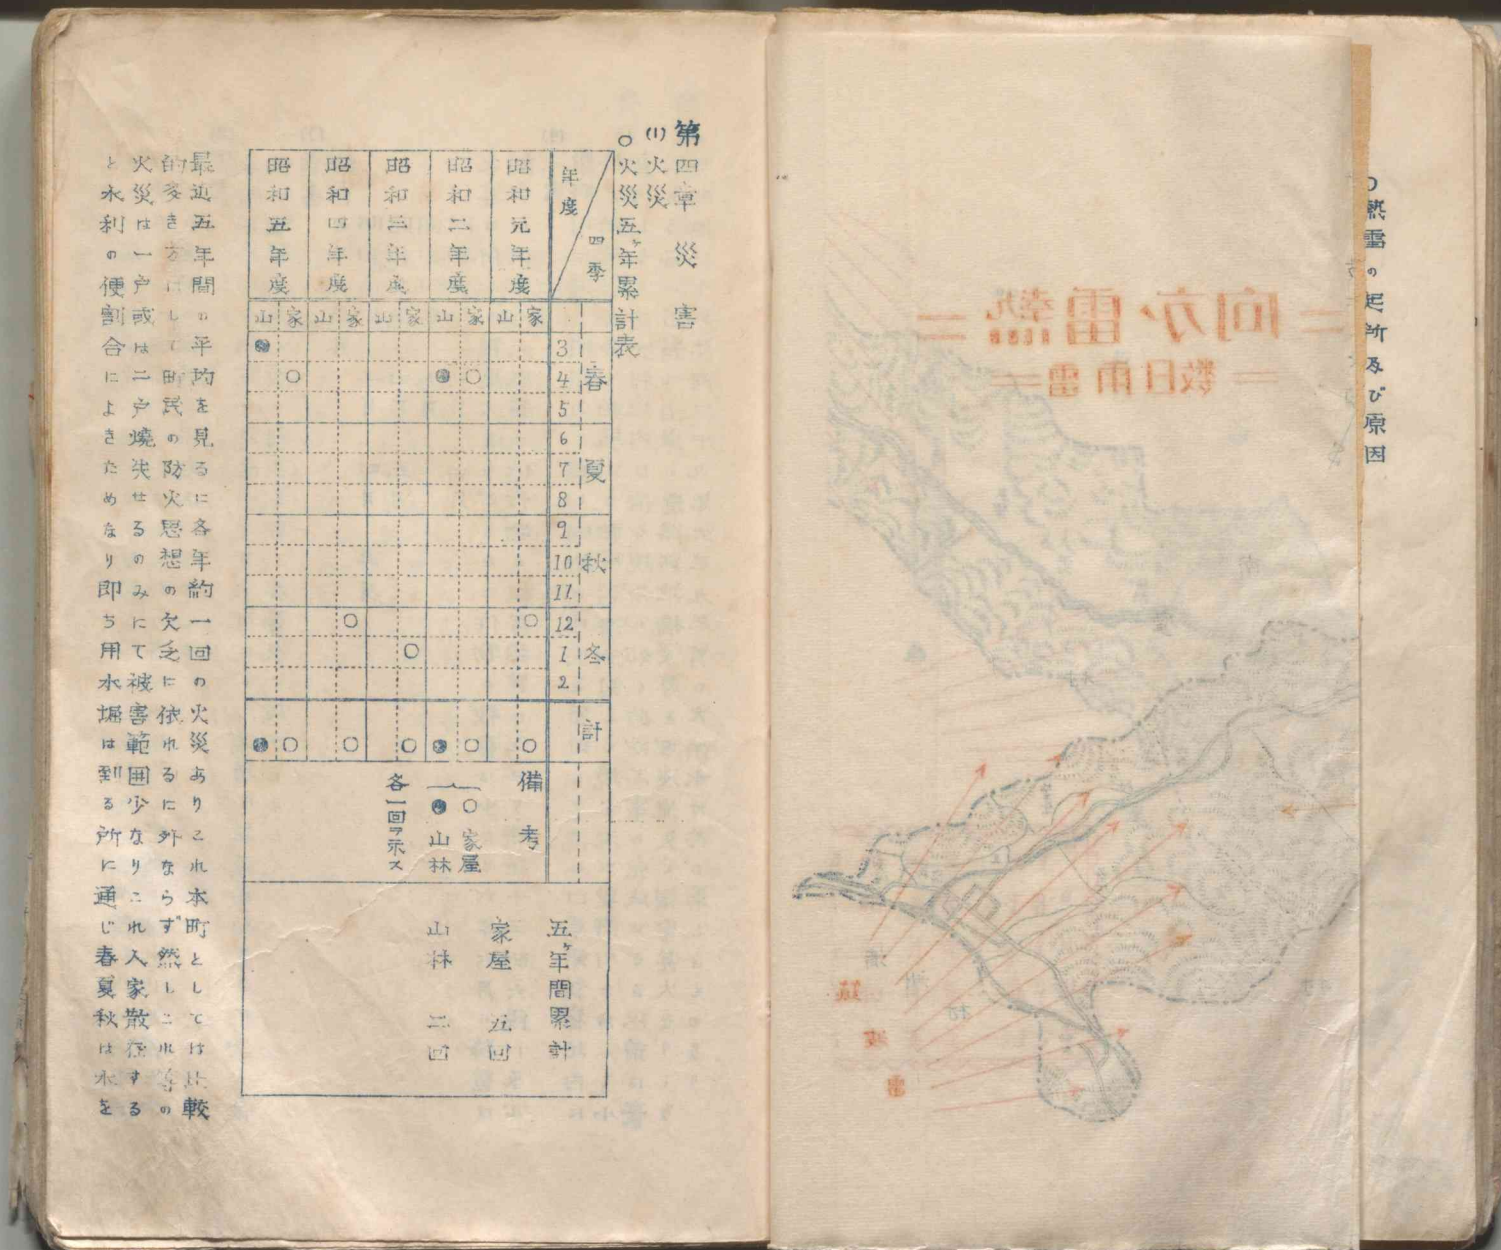 〇熱雷の起所及び原因
=熱雷・方向=
=雷雨日数=
第四章 災害
(1)火災
〇火災五ヶ年累計表
年度 四季
昭和元年度
昭和二年度
昭和三年度
昭和四年度
昭和五年度
家 山 家 山 家 山 家 山 家 山
春 3 4 5
夏 6 7 8
秋 9 10 11
冬 12 1 2
計
備考
〇 家屋
● 山林
各一回ヲ示ス
五ヶ年間累計
家屋 五回
山林 二回
最近五年間の平均を見るに各年約一回の火災ありこれ本町としては比較
的多き方にして町民の防火思想の欠乏に依れるに外ならず然しこれ等の
火災は一戸或は二戸焼失せるのみにて被害範囲少なりこれ人家散在する
と水利の便割合によきためなり即ち用水堀は到る所に通じ春夏秋は水を